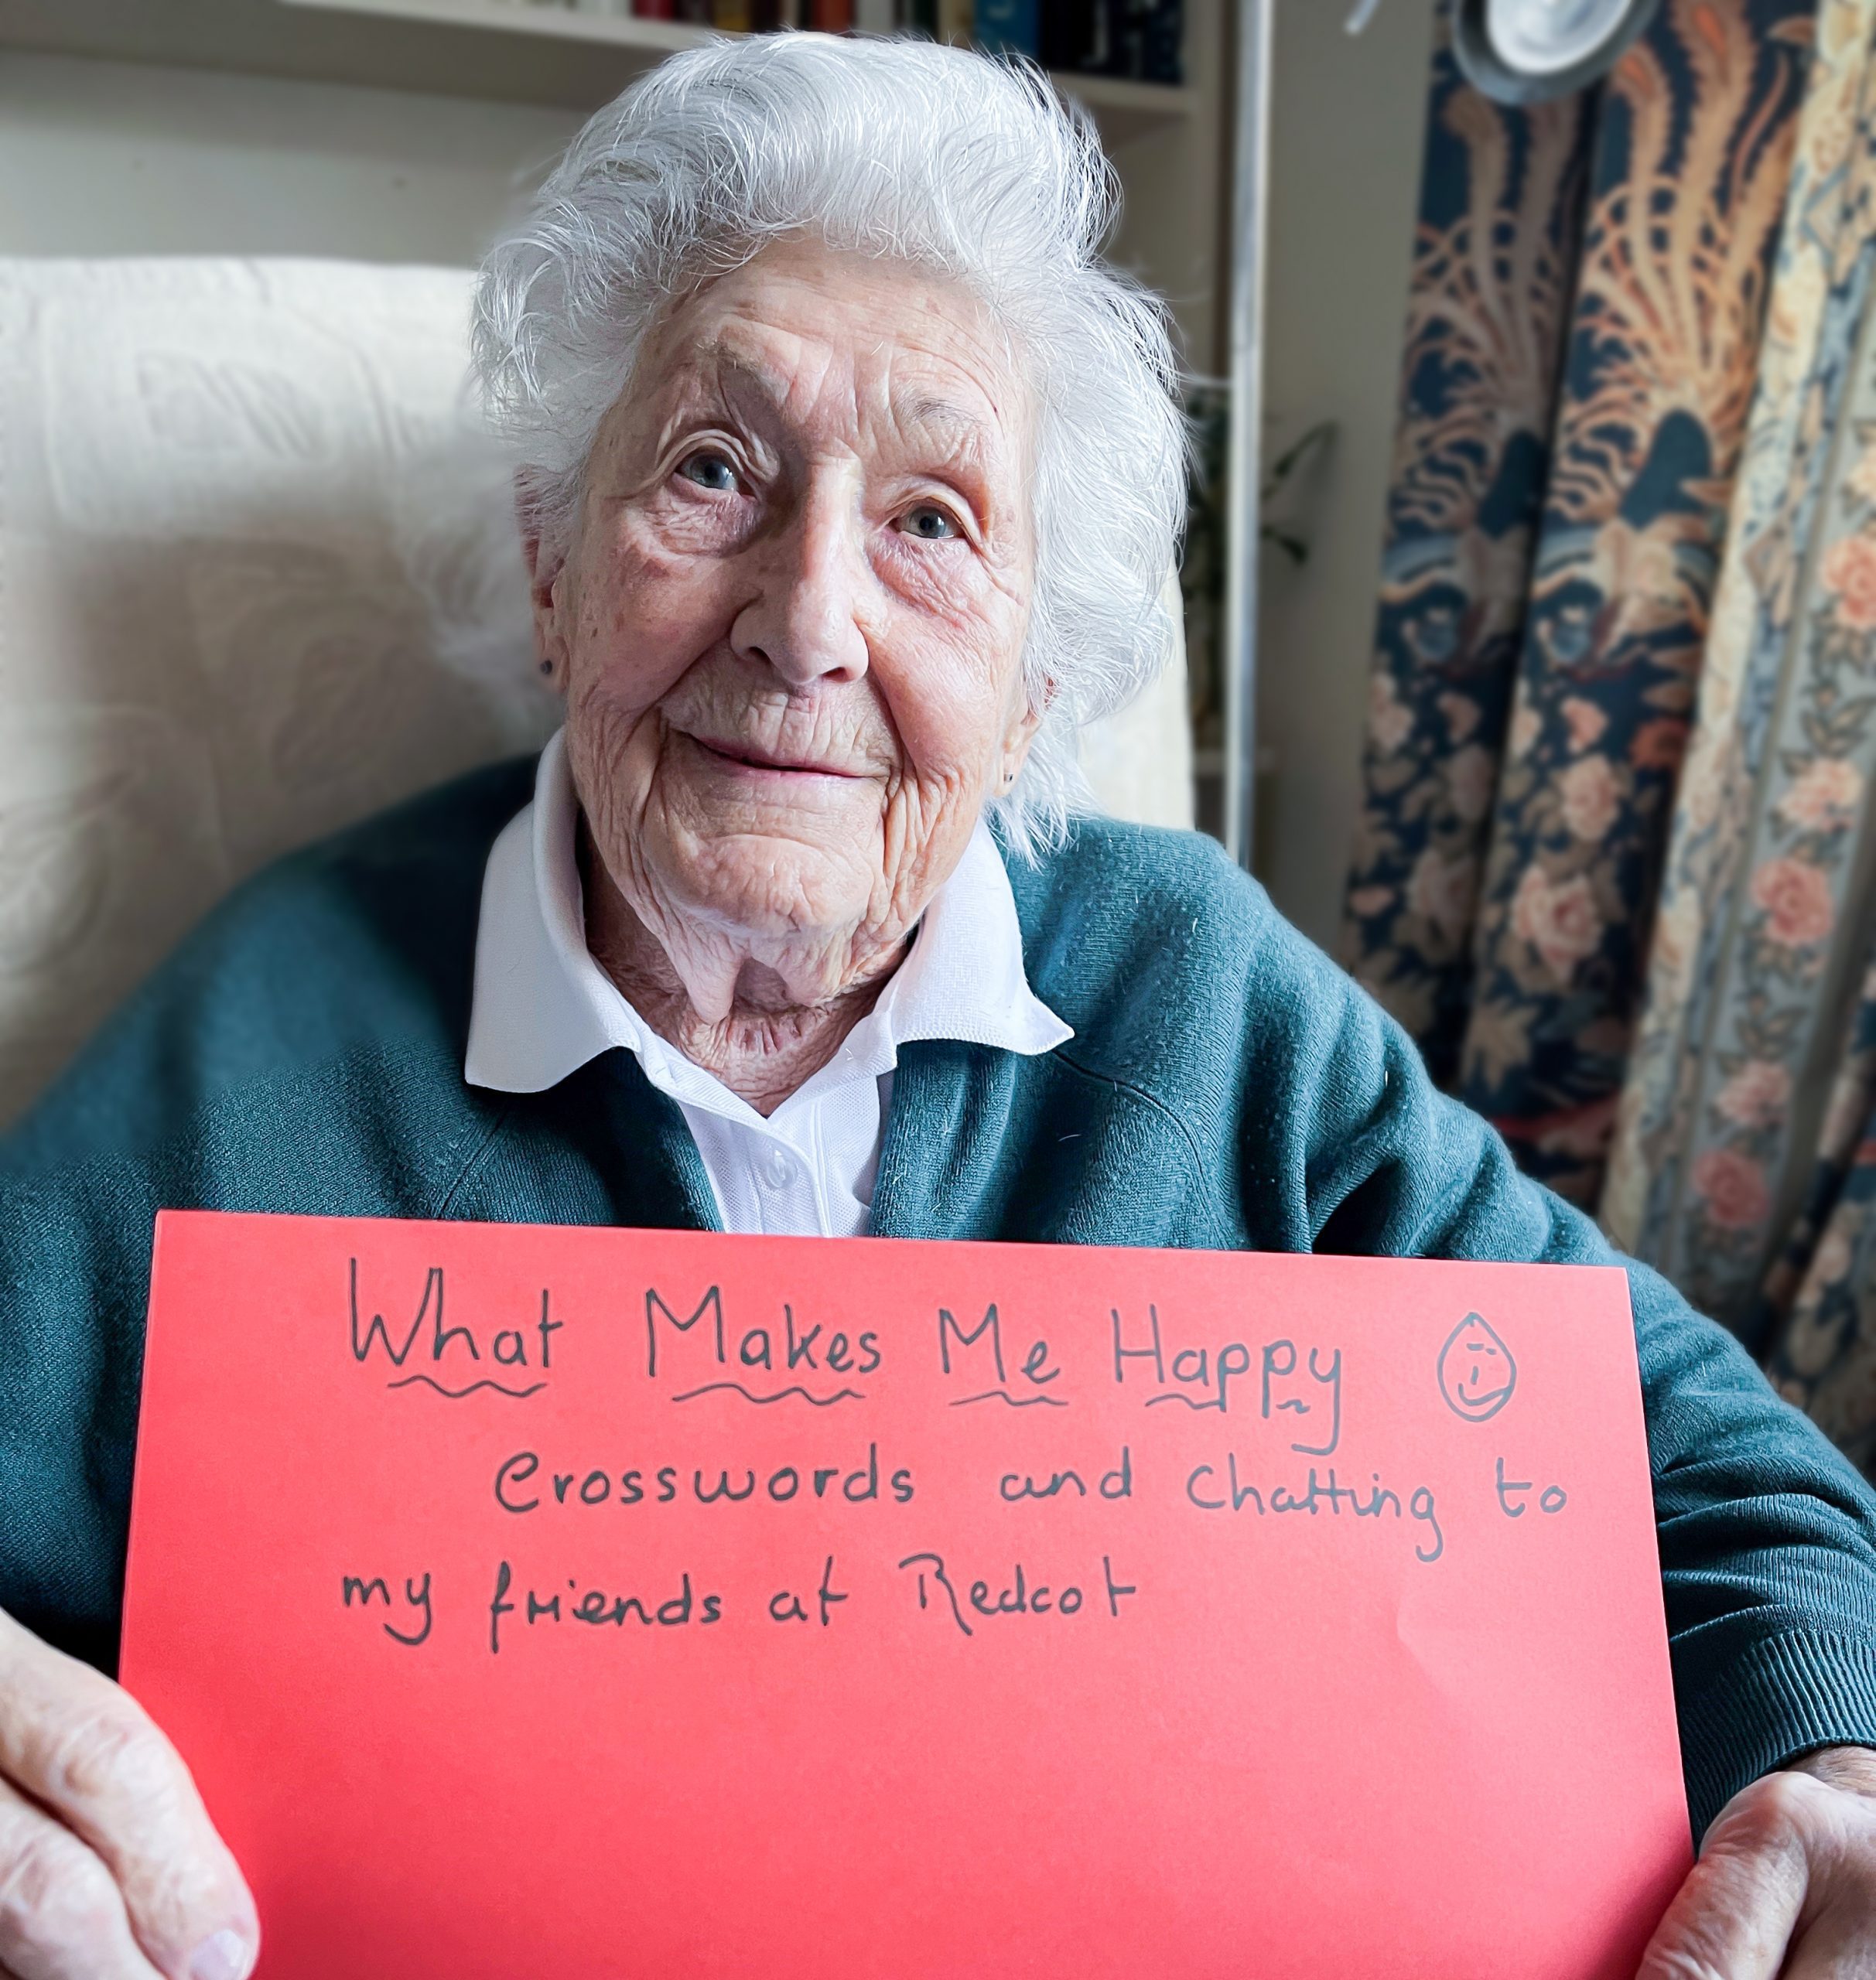 What Makes Me Happy
Crosswords and Chatting to
my friends at Redcot